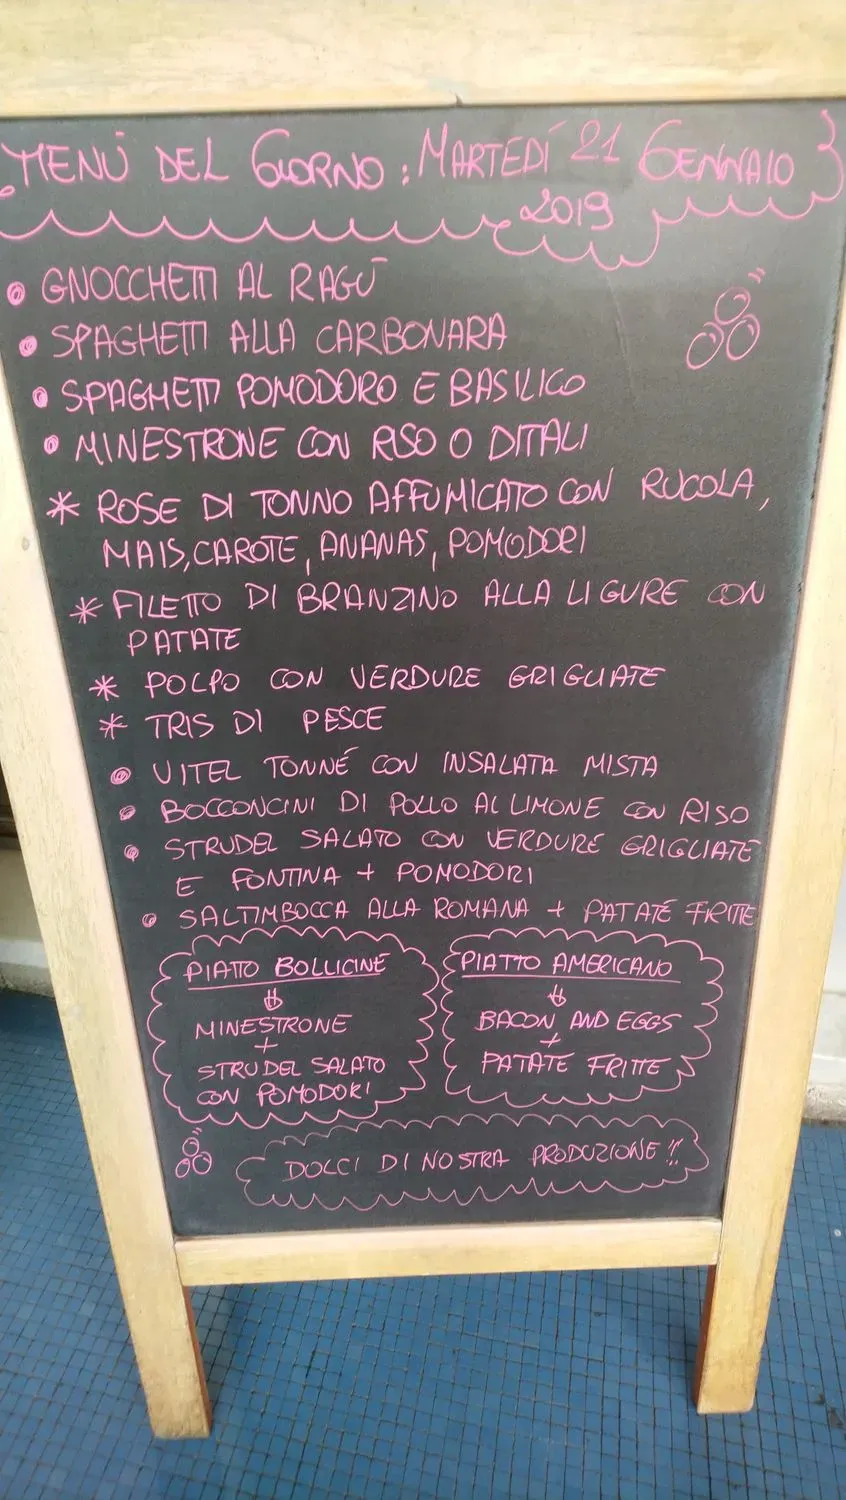 MENÙ DEL GIORNO: MARTEDÍ 21 GENNAIO
2019
• GNOCCHETTI AL RAGÙ
• SPAGHETTI ALLA CARBONARA
• SPAGHETTI POMODORO E BASILICO
• MINESTRONE CON RISO O DITALI
* ROSE DI TONNO AFFUMICATO CON RUCOLA,
MAIS, CAROTE, ANANAS, POMODORI
* FILETTO DI BRANZINO ALLA LIGURE CON
PATATE
* POLPO CON VERDURE GRIGLIATE
* TRIS DI PESCE
• VITEL TONNÉ CON INSALATA MISTA
• BOCCONCINI DI POLLO AL LIMONE CON RISO
• STRUDEL SALATO CON VERDURE GRIGLIATE
E FONTINA + POMODORI
• SALTIMBOCCA ALLA ROMANA + PATATE FRITTE
PIATTO BOLLICINE
⇓
MINESTRONE
+
STRUDEL SALATO
CON POMODORI
PIATTO AMERICANO
⇓
BACON AND EGGS
+
PATATE FRITTE
DOLCI DI NOSTRA PRODUZIONE!!